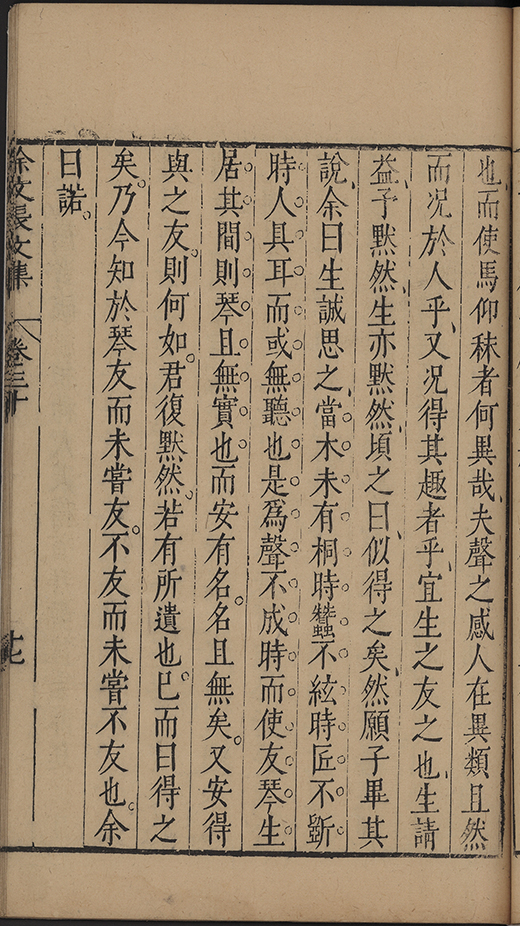 也而使馬仰秣者何異哉夫聲之感人在異類且然
而况於人乎又况得其趣者乎宜生之友之也生請
益予默然生亦默然頃之曰似得之矣然願子畢其
說余曰生誠思之當木未有桐時蠶不絃時匠不斲
時人具耳而或無聽也是爲聲不成時而使友琴生
居其間則琴且無實也而安有名名且無矣又安得
與之友則何如君復默然若有所遺也已而曰得之
矣乃今知於琴友而未嘗友不友而未嘗不友也余
曰諾
徐文長文集 卷三十 十七